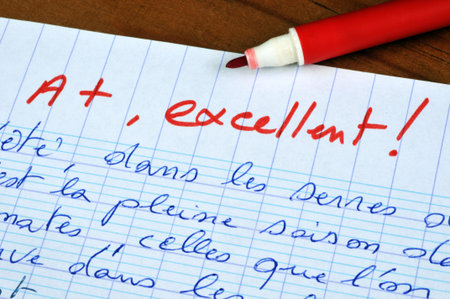 A+, excellent!
été, dans les serres
est la pleine saison
mates celles que l'on
dans les